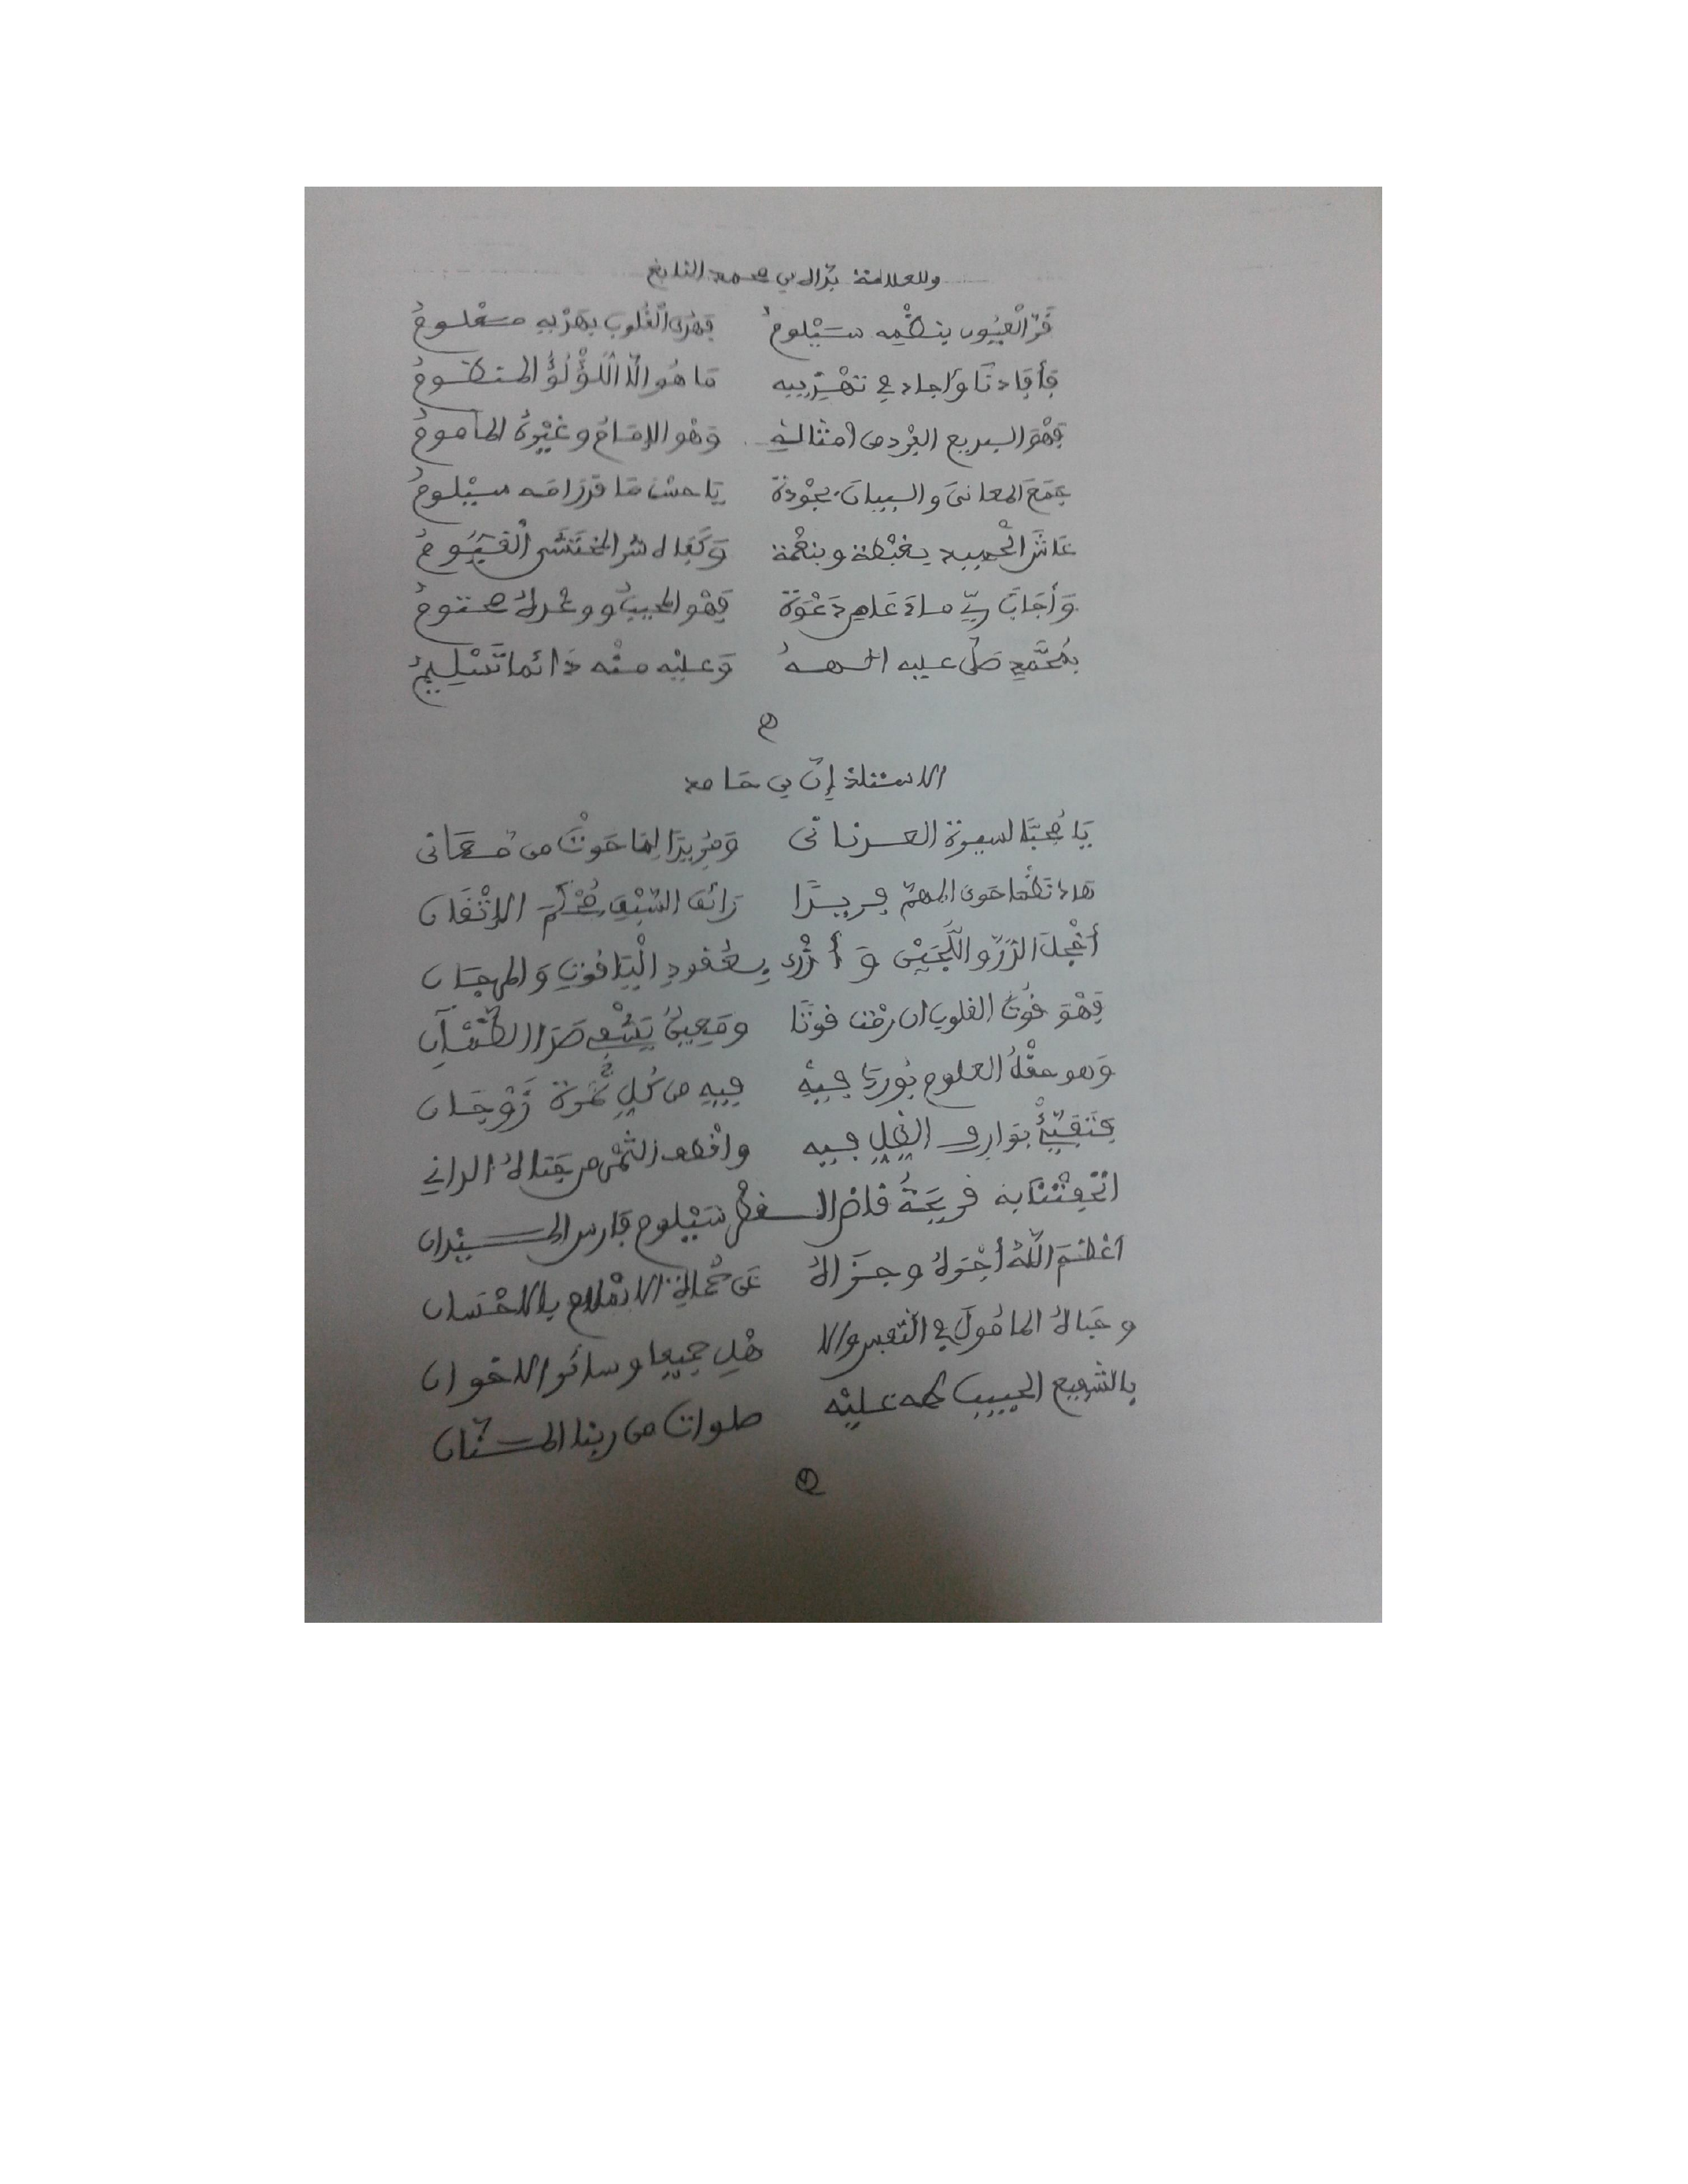 وللعلامة بدّاله بن محمد النابغ
قَرّ الْعيُون بنظْمِه سَيْلومُ فهْدَى الْقلوبَ بهَدْيهِ مسَعْلومُ
فأفادنَا وَأجاد في تهْذيبه مَا هُو الّا الَّلؤْلُؤُ المنظومُ
فَهْوَ البديع الفرْد من أمثاله وَهْو الإمَامُ وغيْرهُ المأمومُ
جمَعَ المعانىَ والبيانَ بجوْدة يَا حسْنَ مَا قد رَامَه سَيْلومُ
عَاشَ الْحبيب بغبْطة وبنعْمة وَكفاه شرّ المختشَى الْقيّومُ
وَأجَابَ ربّي ما دَعَاهُ دَعْوَة فهْو المجيبُ ووعْدهُ محتومُ
بمُحَمَّدٍ صَلّى عليه إلهه وَعليْه منْه دَائما تَسْليمُ
الاستاذ إنّ بن حامد
يَا مُحبَّا لسيرة العدنانى وَمُريدًا لمَا حَوتْ من مَعَانى
هاذ نظمًا حوى المهمّ فريدًا رَائقَ السّبْك مُحْكَمَ الإتْقَان
أخْجلَ الدّرّ و اللُّجَيْن وَ أزْرى بعُقودِ الْيَاقوتِ وَالمرجان
فَهْوَ قوتُ القلوب ان رمْت قوتًا ومَعينٌ يَشْفي صَدَا الظّمْآن
وَهو حقْلُ العلوم بُوركَ فيهِ فيهِ من كُلِ ثمرة زَوْجَان
فَتَفيّأْ بوارف الظّل فيه واقْطف الثمْر من جَناهُ الداني
اتْحفتْنَا به قريحَةُ قاض السفر سَيْلوم فارس الميْدان
اعْظَمَ اللّهُ أجْرَهُ وجزَاهُ عن حُماة الاسْلام بالاحْسان
وحَبَاهُ المأمُولَ في النّفس والا هْل جميعا وسائر الاخوان
بالشفيع الحبيب طه عليْه صلوات من ربنا المنّان